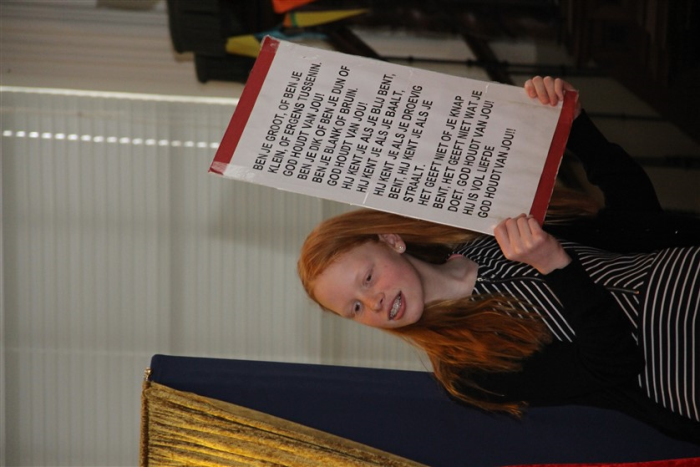 BEN JE GROOT, OF BEN JE
KLEIN, OF ERGENS TUSSENIN.
GOD HOUDT VAN JOU!
BEN JE DIK OF BEN JE DUN OF
BEN JE BLANK OF BRUIN.
GOD HOUDT VAN JOU!
HIJ KENT JE ALS JE BLIJ BENT,
HIJ KENT JE ALS JE BAALT,
HIJ KENT JE ALS JE DROEVIG
BENT, HIJ KENT JE ALS JE
STRAALT.
HET GEEFT NIET OF JE KNAP
BENT, HET GEEFT NIET WAT JE
DOET, GOD HOUDT VAN JOU!
HIJ IS VOL LIEFDE
GOD HOUDT VAN JOU!!